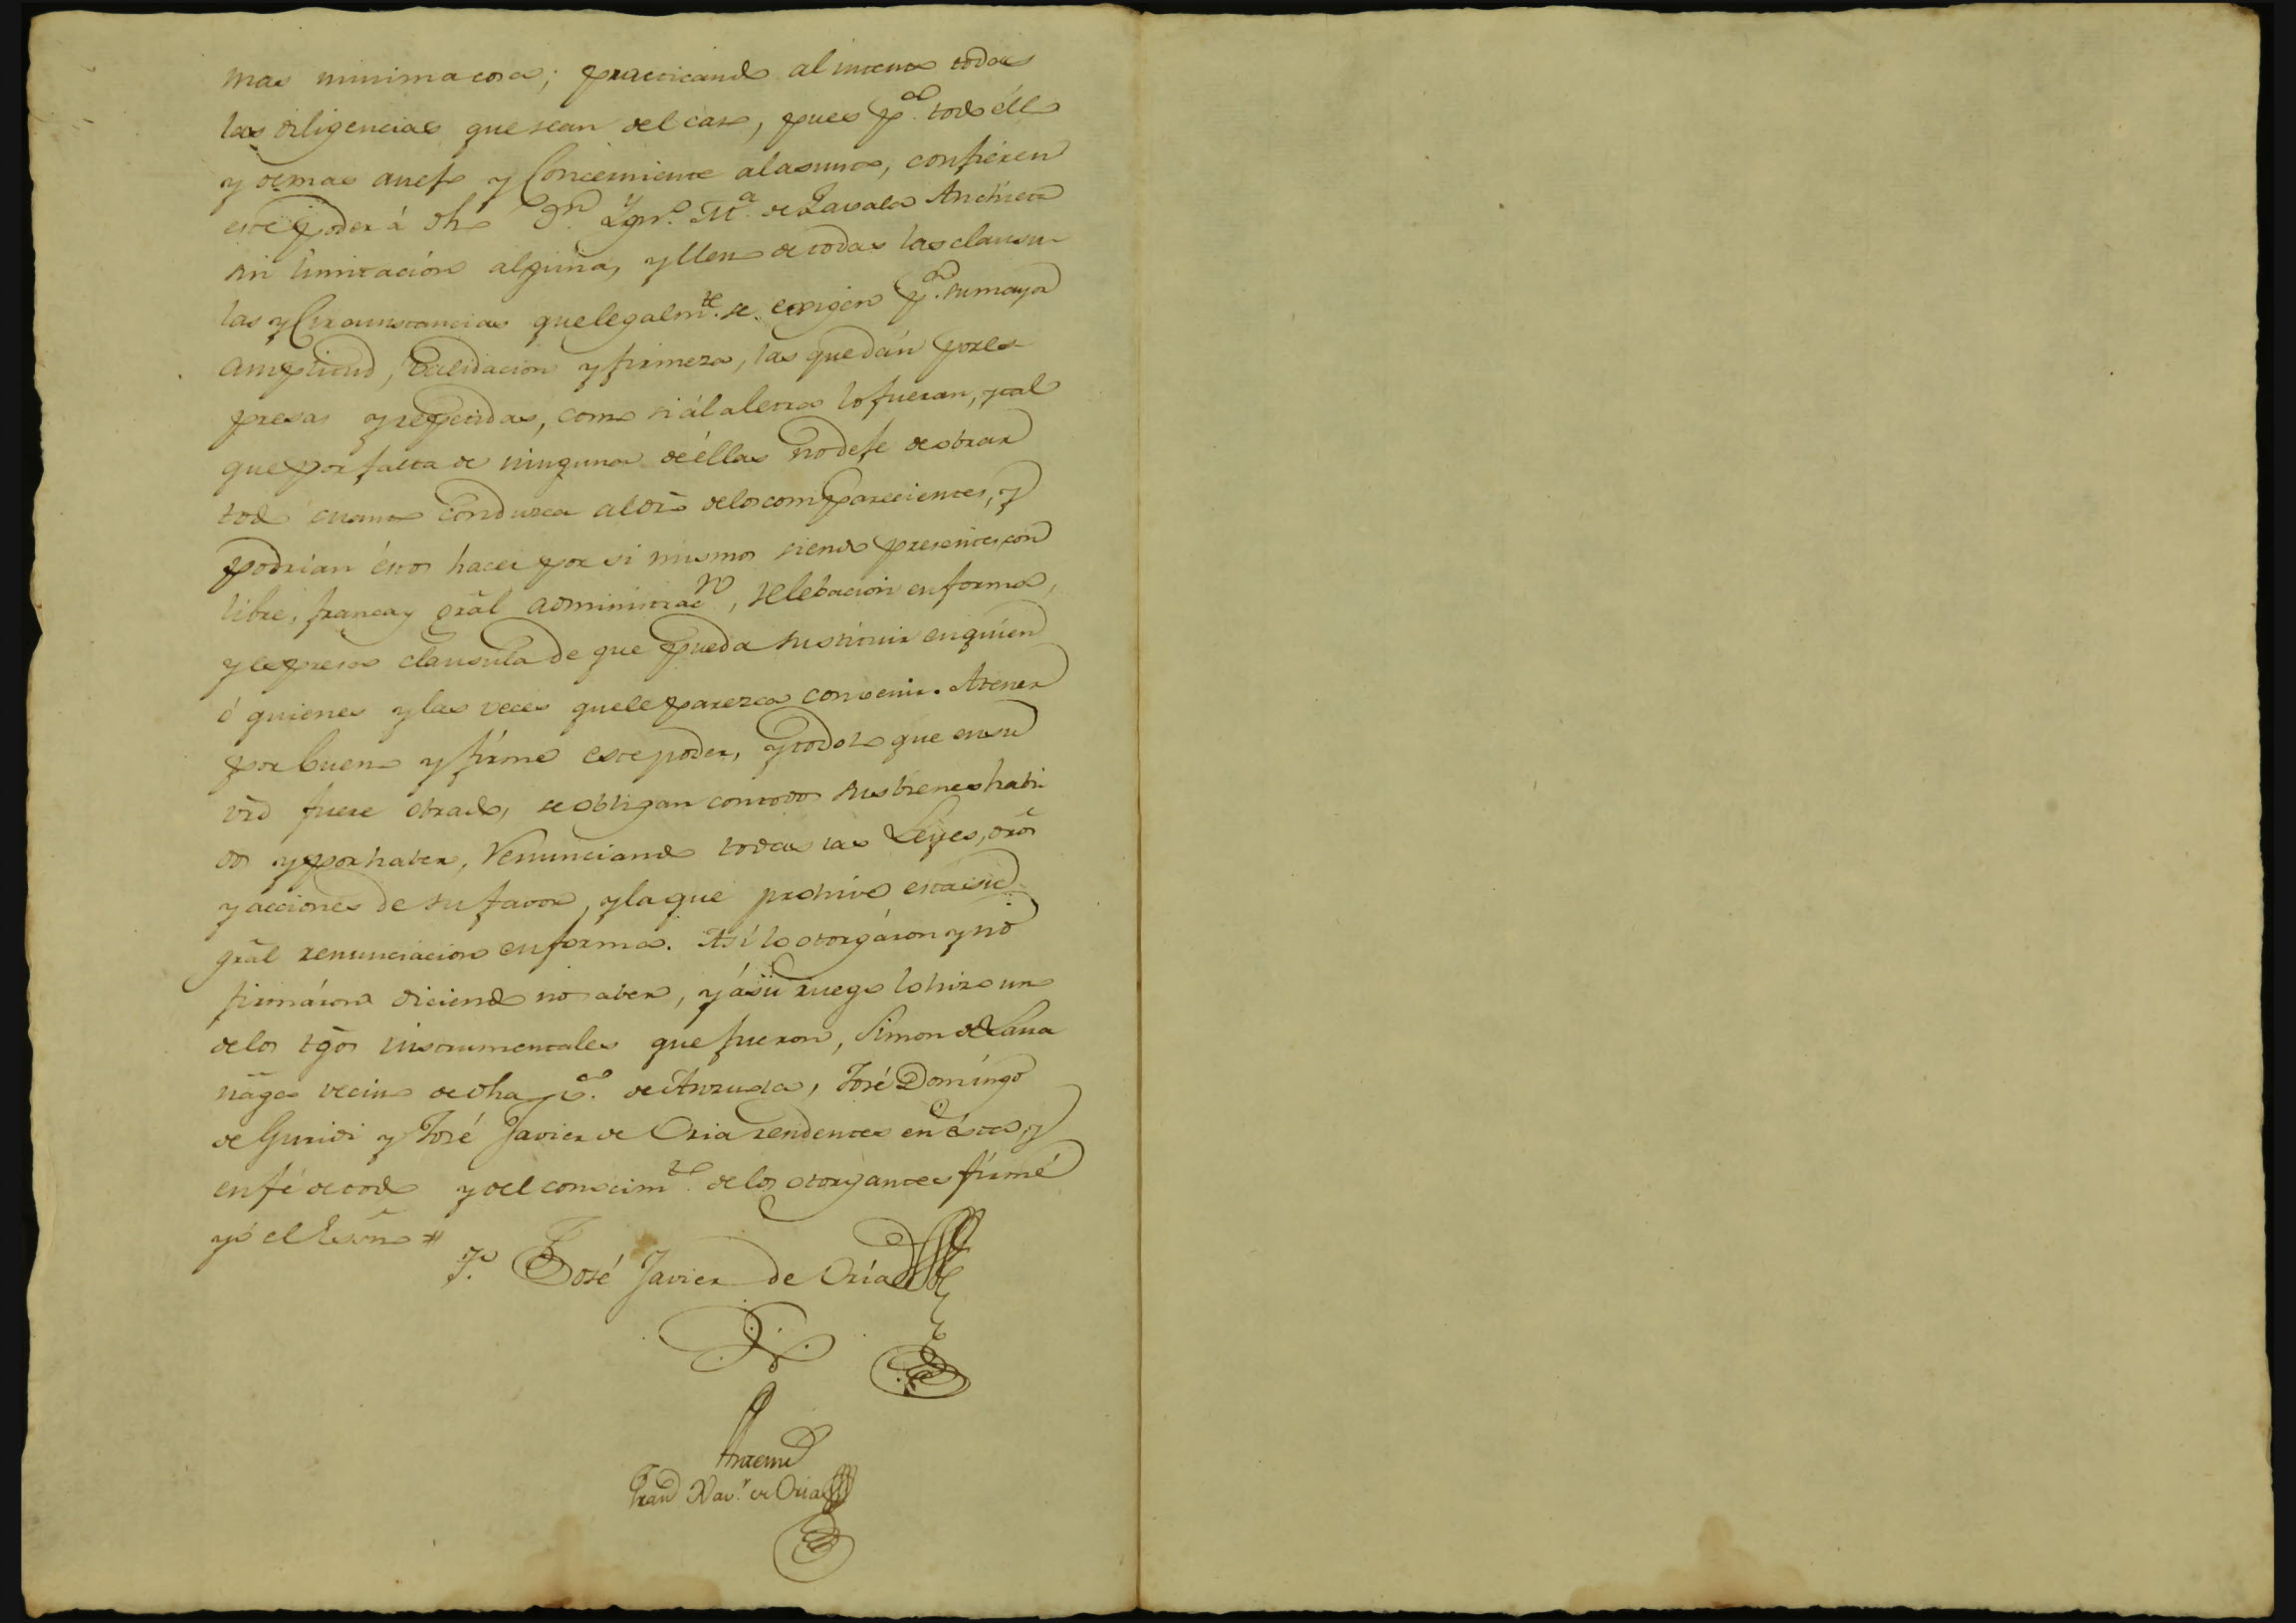 mas minima cosa; practicando al intento todas
las diligencias que sean del caso, pues pa. todo éllo
y demas anejo y Concerniente al asunto, confieren
este poder á dho Dn. Igno. Ma. de Zavala Anchieta
sin limitación alguna, y lleno de todas las clausu-
las y Circunstancias que legalmte. se exigen pa. su mayor
amplitud, Validacion y firmeza, las que dán por es-
presas y repetidas, como si á la letra lo fueran, y tal
que por falta de ninguna de éllas no deje de obrar
todo cuanto Conduzca al dro de los comparecientes, y
podrian éstos hacer por si mismos siendo presentes, con
libre, franca y gral administracn, relebacion en forma,
y espresa clausula de que pueda sustituir en quien
ó quienes y las veces que le parezca convenir. A tener
por bueno y firme este poder, y todo lo que en su
vrd fuere obrado, se obligan con todos sus bienes habi-
dos y por haber, Renunciando todas las Leyes, dros
y acciones de su favor, y la que prohive esta
gral renunciacion en forma. Así lo otorgáron y no
firmáron diciendo no saber, y á su ruego lo hizo uno
de los tgos instrumentales que fueron, Simon de Lana
naga vecino de dha de Anzuola, José Domingo
de Guridi y José Javier de Oria residentes en ésta, y
en fé de todo y del conocimto. de los otorgantes firmé
yo el Esno #
To. José Javier de Oria
Ante mi
Franco Xavr. de Oria